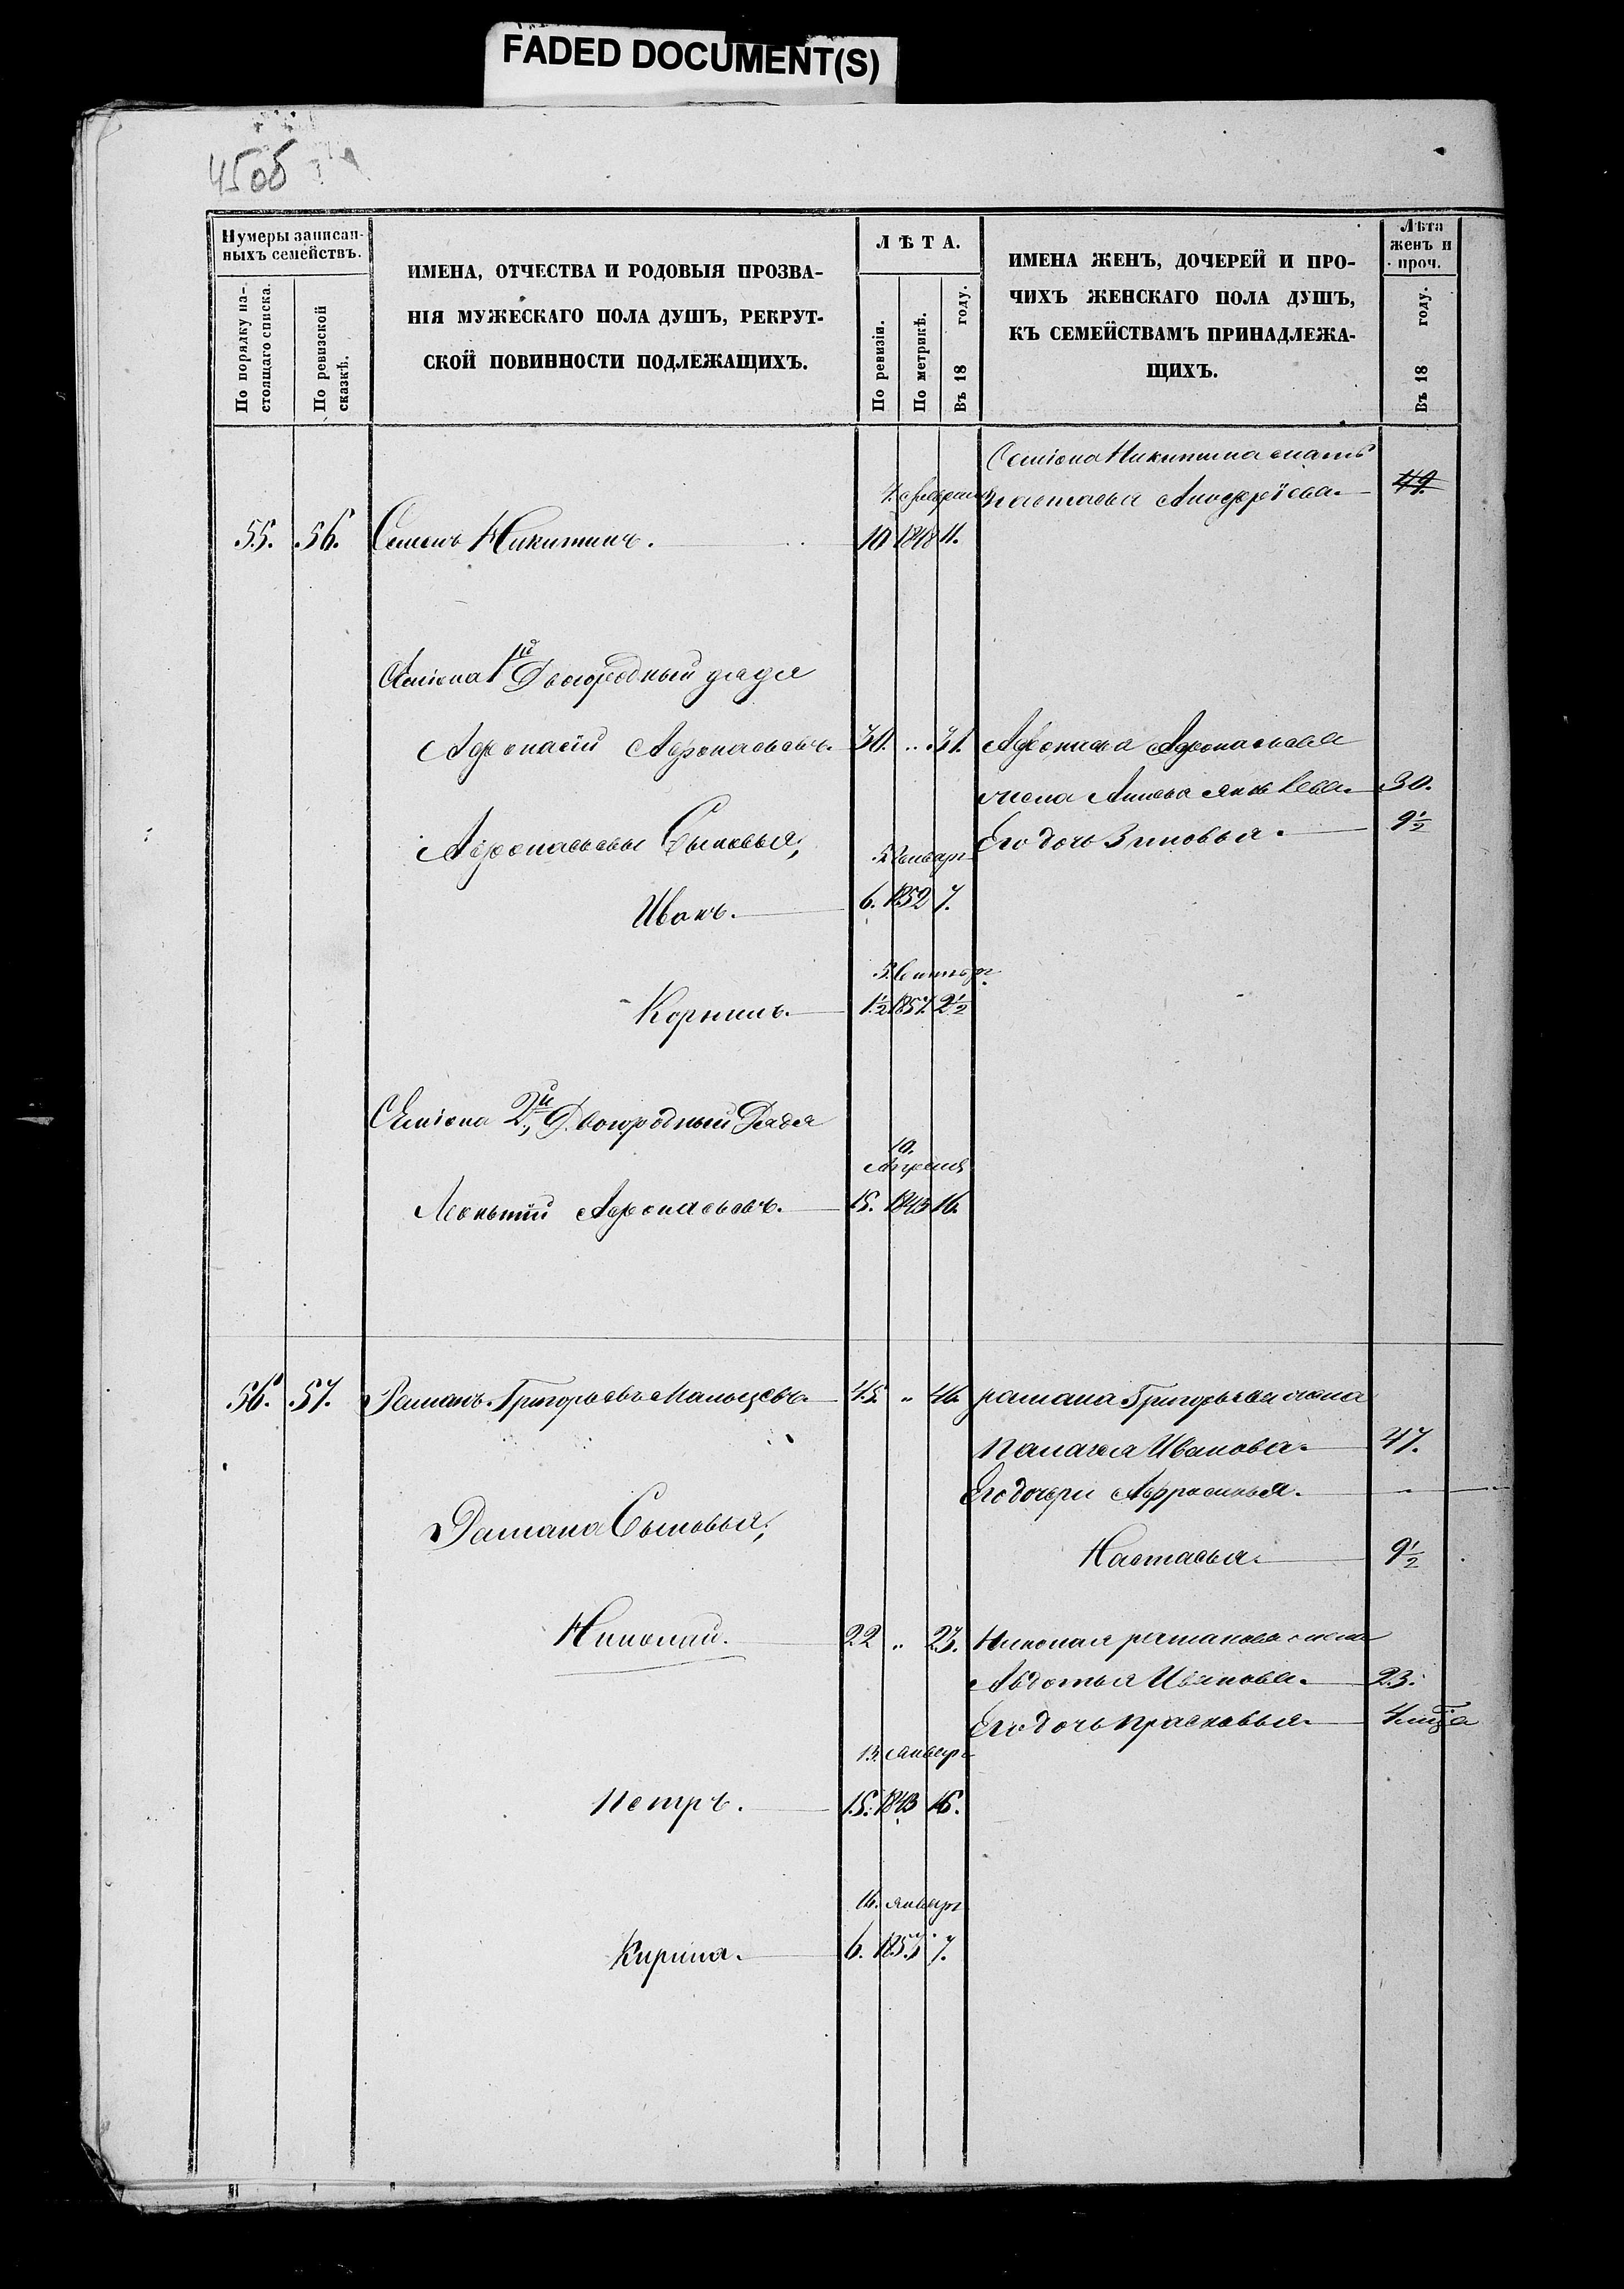 FADED DOCUMENT(S)
45об
Нумеры записан-
ныхъ семействъ.
По порядку на-
стоящаго списка.
По ревизской
сказкѣ.
ИМЕНА, ОТЧЕСТВА И РОДОВЫЯ ПРОЗВА-
НІЯ МУЖЕСКАГО ПОЛА ДУШЪ, РЕКРУТ-
СКОЙ ПОВИННОСТИ ПОДЛЕЖАЩИХЪ.
ЛѢТА.
По ревизіи.
По метрикѣ.
Въ 18 году.
ИМЕНА ЖЕНЪ, ДОЧЕРЕЙ И ПРО-
ЧИХЪ ЖЕНСКАГО ПОЛА ДУШЪ,
КЪ СЕМЕЙСТВАМЪ ПРИНАДЛЕЖА-
ЩИХЪ.
Лѣта
женъ и
проч.
Въ 18 году.
Семіона Никитина мать
4. февраля Настасья 49.
55. 56. Семенъ Никитинъ. 10 1848 11.
Семіона 1й Двоюродный дядя
Афонасій Афонасьевъ. 30. .. 31. Афонасья Афонасьева
жена Яковлева. 30.
Афонасьевы Сыновья; 5 Январ Его дочь Зиновья. 9½
Иванъ. 6. 1852 7.
5. Сентябр
Корнилъ. 1½ 1857. 2½
Семіона 2й Двоюродный Дядя
10.
Леонтій Афонасьевъ. 15. 1843 16.
56. 57. Раманъ Григорьевъ Мальцевъ. 45. .. 46. рамана Григорьева жена
Палагея Иванова. 47.
Его дочери Афросинья.
Рамана Сыновья;
Настасья. 9½
Николай. 22 .. 23. Николая раманова жена
Авдотья Иванова. 23.
Его дочь Прасковья.
13. Январ
Петръ. 15. 1843 16.
16. Январ
Кирила. 6. 1853 7.